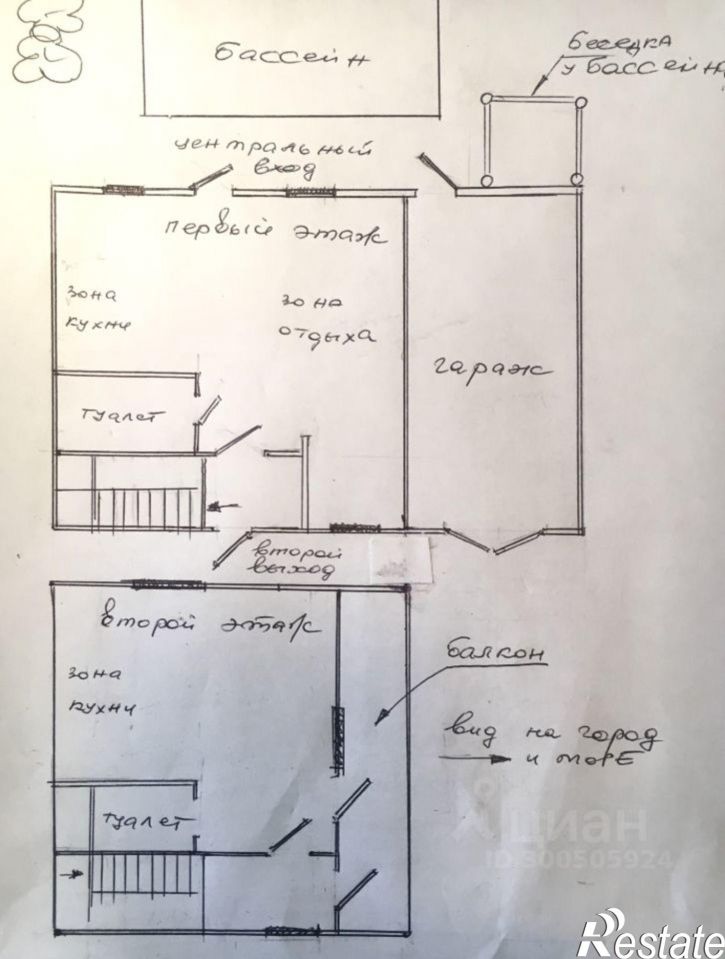 бассейн
беседка
у бассейн
центральный
вход
первый этаж
зона
кухни
зона
отдыха
гараж
туалет
второй
выход
второй этаж
зона
кухни
балкон
вид на город
и морЕ
туалет
циан
ID:300505924
Restate